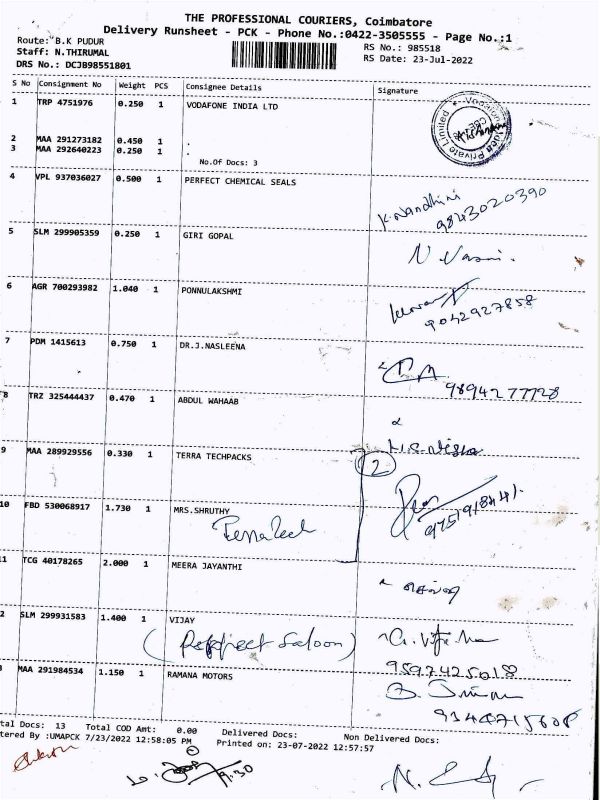 THE PROFESSIONAL COURIERS, Coimbatore
Delivery Runsheet - PCK - Phone No.:0422-3505555 - Page No.:1
Route:B.K PUDUR
Staff: N.THIRUMAL
DRS No.: DCJB98551801
RS No.: 985518
RS Date: 23-Jul-2022
S No Consignment No Weight PCS Consignee Details Signature
1 TRP 4751976 0.250 1 VODAFONE INDIA LTD
2 MAA 291273182 0.450 1 .
3 MAA 292640223 0.250 1 .
No.Of Docs: 3
4 VPL 937036027 0.500 1 PERFECT CHEMICAL SEALS
K. Nandhini
9843020390
5 SLM 299905359 0.250 1 GIRI GOPAL
6 AGR 700293982 1.040 1 PONNULAKSHMI
9042927858
7 PDM 1415613 0.750 1 DR.J.NASLEENA
8 TRZ 325444437 0.470 1 ABDUL WAHAAB
9 MAA 289929556 0.330 1 TERRA TECHPACKS
2
10 FBD 530068917 1.730 1 MRS.SHRUTHY
11 TCG 40178265 2.000 1 MEERA JAYANTHI
2 SLM 299931583 1.400 1 VIJAY
9597425018
MAA 291984534 1.150 1 RAMANA MOTORS
tal Docs: 13 Total COD Amt: 0.00 Delivered Docs: Non Delivered Docs:
tered By :UMAPCK 7/23/2022 12:58:05 PM Printed on: 23-07-2022 12:57:57
9:30